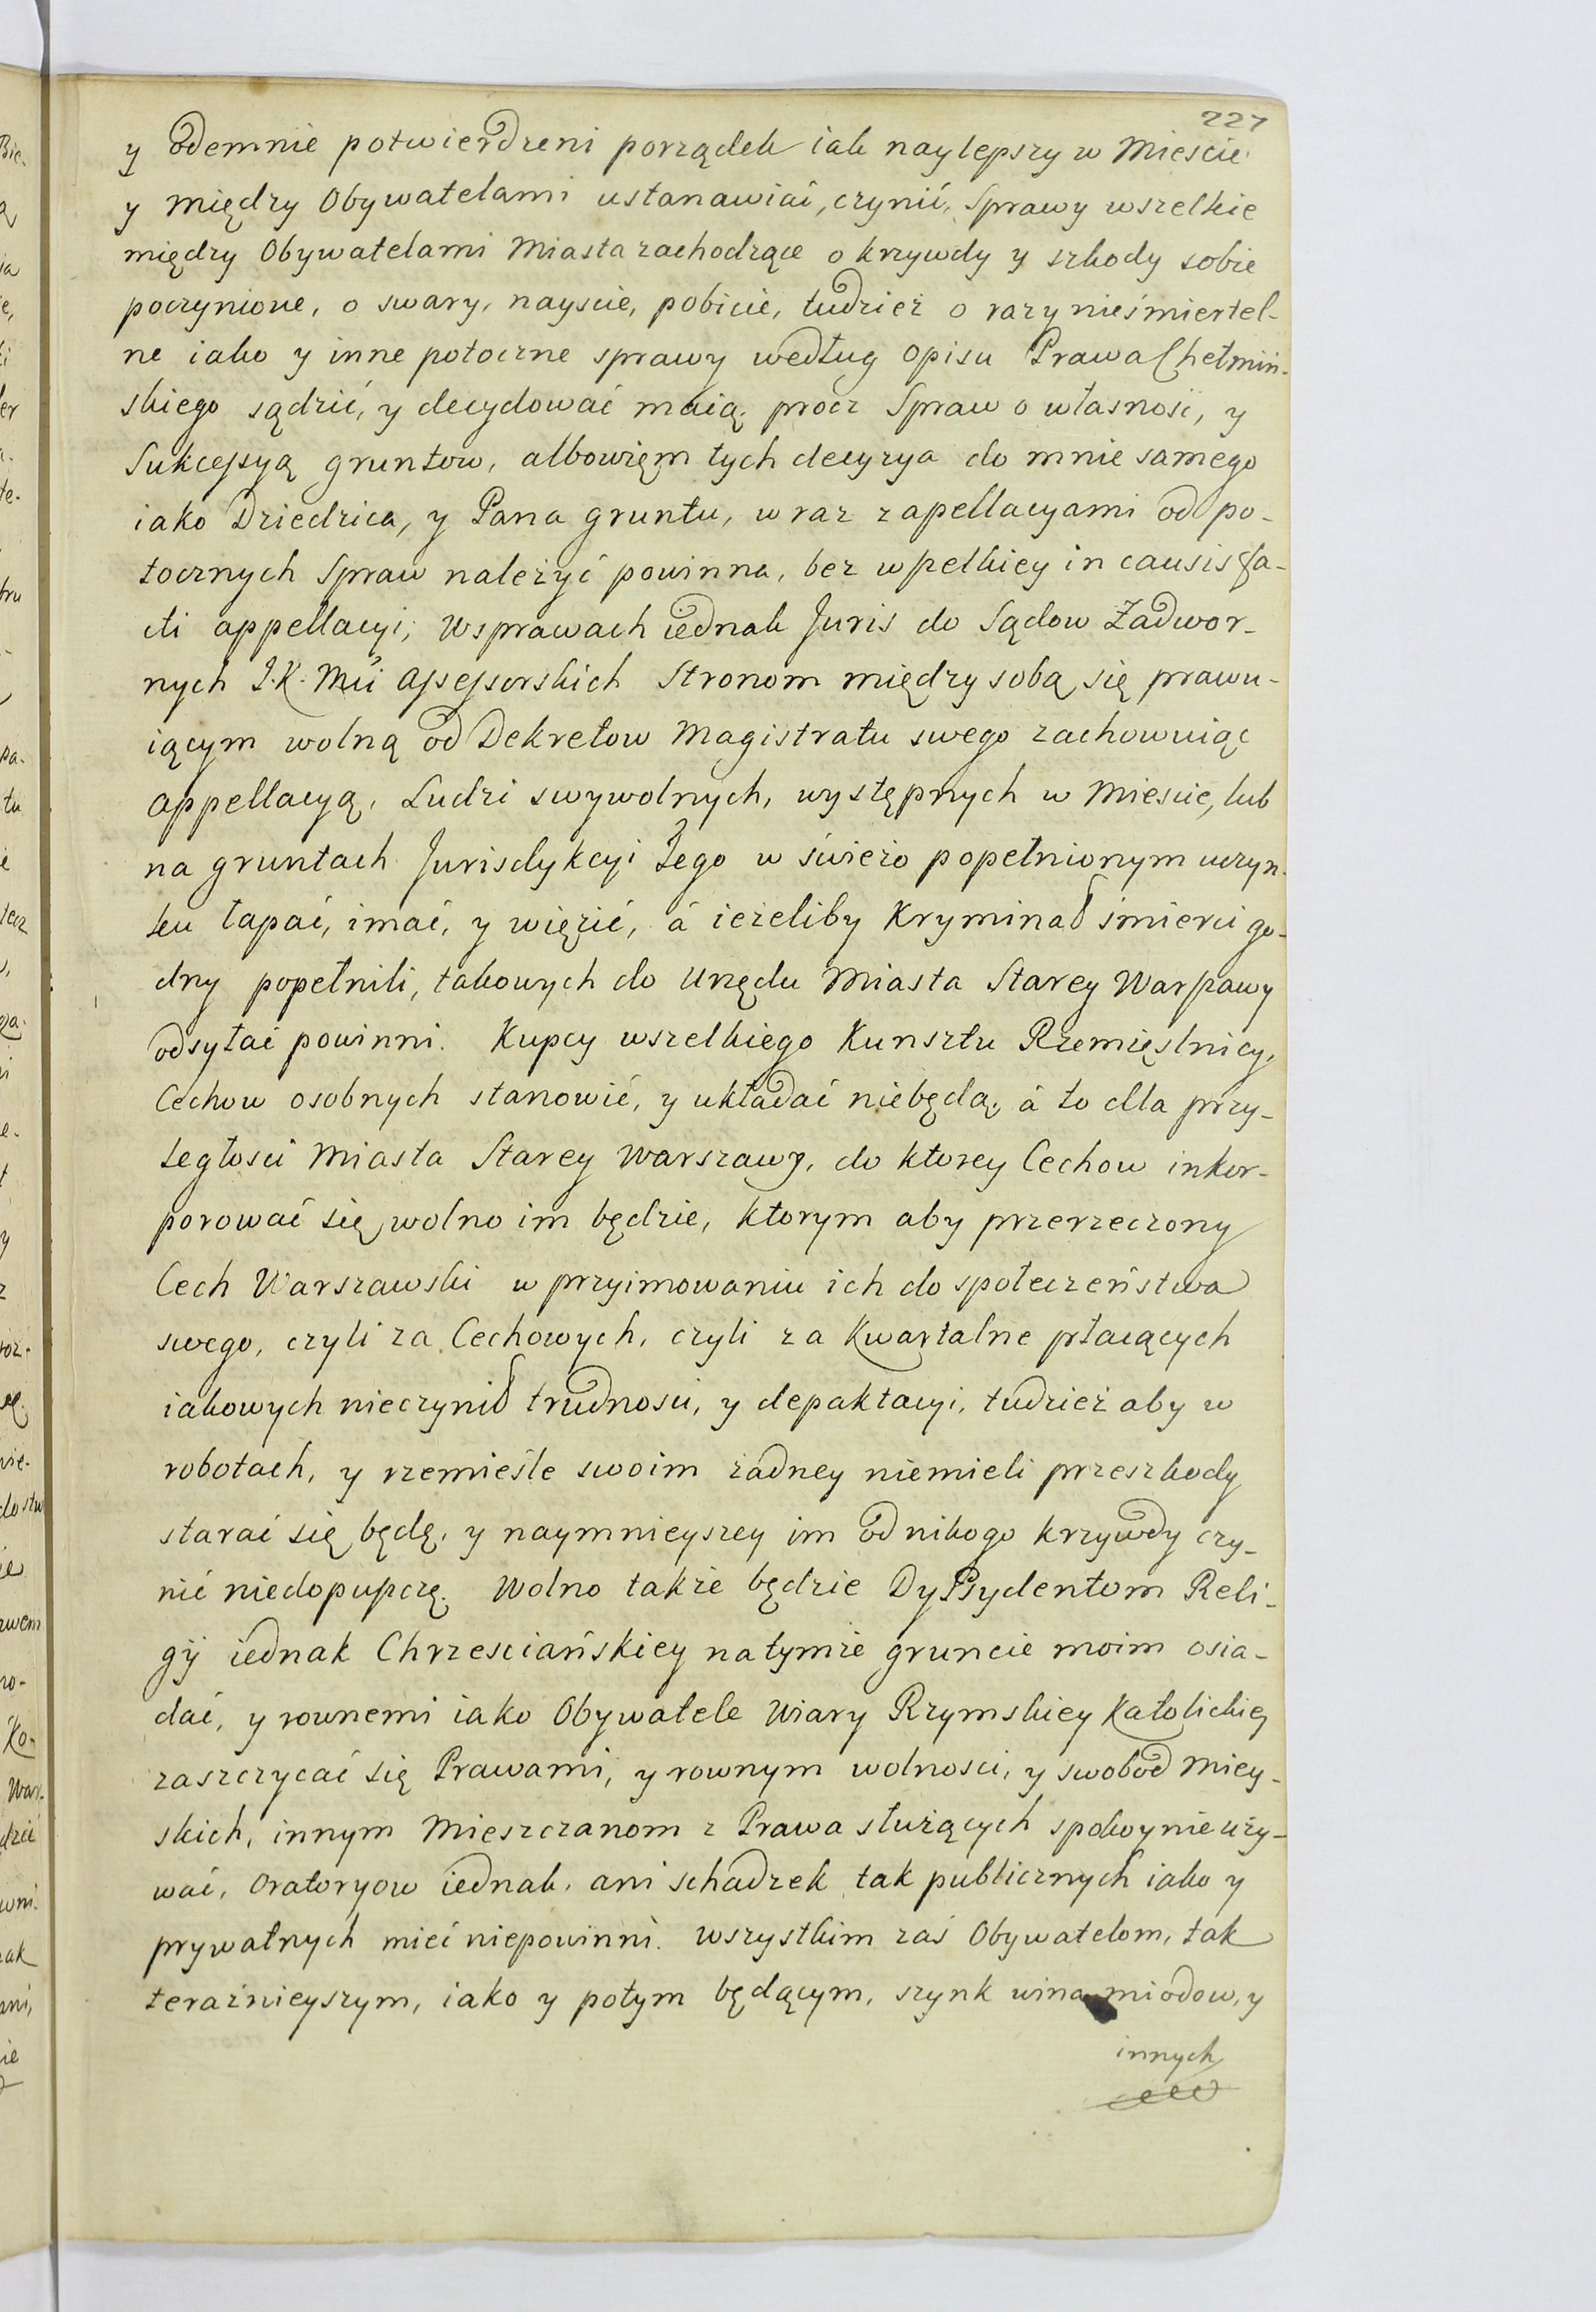 227
y odemnie potwierdzeni porządek iak naylepszy w Miescie
y między Obywatelami ustanawiać, czynić, Sprawy wszelkie
między Obywatelami Miasta zachodzące o krzywdy y szkody sobie
poczynione, o swary, nayscie, pobicie, tudzież o razy nieśmiertel-
ne iako y inne potoczne sprawy według opisu Prawa Chełmiń-
skiego sądzić, y decydować maią, procz Spraw o własność, y
Sukcessyą gruntow, albowięm tych decyzya do mnie samego
iako Dziedzica, y Pana gruntu, wraz z apellacyami od po-
tocznych Spraw należyć powinna, bez wszelkiey in causis fa-
cti appellacyi, W sprawach iednak Juris do Sądow Zadwor-
nych J.K.Mći Assessorskich Stronom między sobą się prawu-
iącym wolną od Dekretow Magistratu swego zachowuiąc
appellacyą, Ludzi swywolnych, występnych w Miescie, lub
na gruntach Jurisdykcyi Jego w świeżo popełnionym uczyn-
ku łapać, imać, y więzić, á ieżeliby Kryminał śmierci go-
dny popełnili, takowych do Urzędu Miasta Starey Warszawy
odsyłać powinni. Kupcy wszelkiego Kunsztu Rzemięslnicy,
Cechow osobnych stanowić, y układać niebędą, á to dla przy-
ległosci Miasta Starey Warszawy, do ktorey Cechow inkor-
porować się wolno im będzie, ktorym aby przerzeczony
Cech Warszawski w przyimowaniu ich do społeczeństwa
swego, czyli za Cechowych, czyli za Kwartalne płacących
iakowych nieczynił trudnosci, y depaktacyi, tudzież aby w
robotach, y rzemieśle swoim żadney niemieli przeszkody
starać się będę, y naymnieyszey im od nikogo krzywdy czy-
nić niedopuszczę. Wolno także będzie Dyssydentom Reli-
gij iednak Chrzesciańskiey na tymże gruncie moim osia-
dać, y rownemi iako Obywatele Wiary Rzymskiey Katolickiey
zaszczycać się Prawami, y rownym wolnosci, y swobod Miey-
skich, innym Mieszczanom z Prawa służących spokoynie uży-
wać, Oratoryow iednak, ani schadzek tak publicznych iako y
prywatnych mieć niepowinni. Wszystkim zaś Obywatelom, tak
teraznieyszym, iako y potym będącym, szynk wina miodow, y
innych